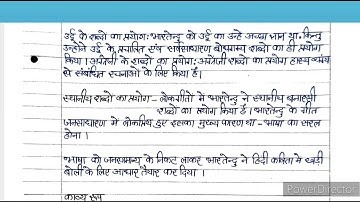 उर्दू के शब्दों का प्रयोग:- भारतेन्दु को उर्दू का उन्हें अच्छा ज्ञान था, किन्तु
उन्होंने उर्दू के प्रचलित एवं सर्वसाधारण बोधगम्य शब्दों का ही प्रयोग
किया। अंग्रेजी के शब्दों का प्रयोग: अंग्रेजी शब्दों का प्रयोग हास्य व्यंग्य
से संबंधित रचनाओं के लिए किया है।
स्थानीय शब्दों का प्रयोग - लोकगीतों में भारतेन्दु ने स्थानीय बनारसी
शब्दों का प्रयोग किया है। भारतेन्दु के गीत
जनसाधारण में लोकप्रिय हुए इसका मुख्य कारण था - भाषा का सरल
होना।
भाषा को जनसामान्य के निकट लाकर भारतेन्दु ने हिंदी कविता में खड़ी
बोली के लिए आधार तैयार कर दिया।
काव्य रूप
PowerDirector